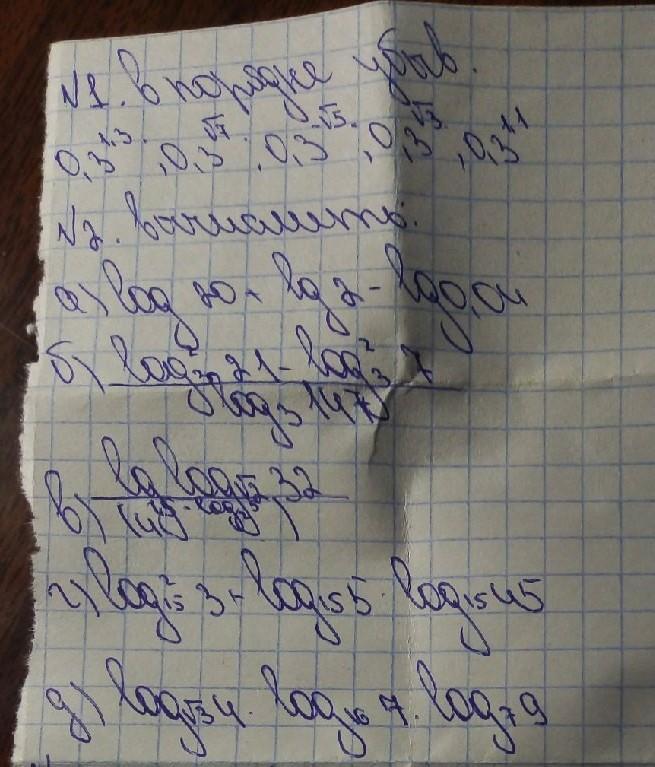 №1. в порядке убыв.
0,3^1,3, 0,3^√7, 0,3^-√5, 0,3^√3, 0,3^1,1
№2. вычислить:
а) log 20 + lg 2 - lg 0,04
б) (log²₃ 21 - log²₃ 7) / log₃ 147
в) lg log_√2 32
г) log²₁₅ 3 + log₁₅ 5 · log₁₅ 45
д) log_√3 4 · log₁₆ 7 · log₇ 9